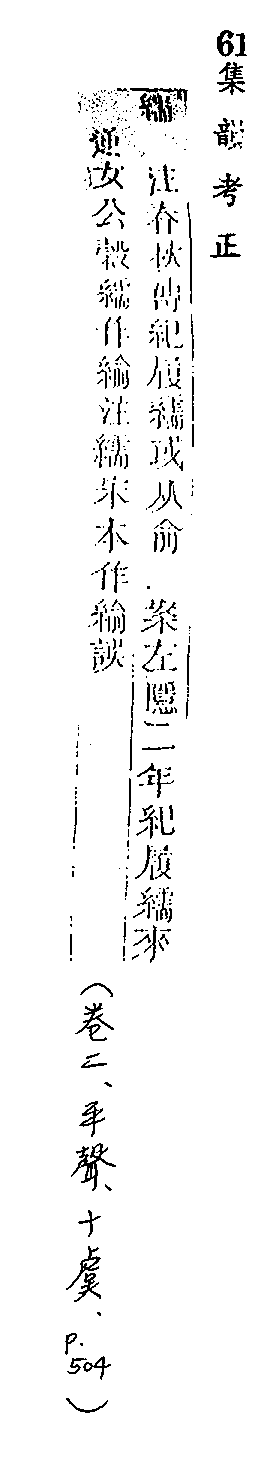 61
集韻考正
繻 注春秋傳紀履繻或从俞 . 案左隱二年紀履繻來
逆女公穀繻作緰注繻宋本作緰誤
(卷二、平聲、十虞、p.504)